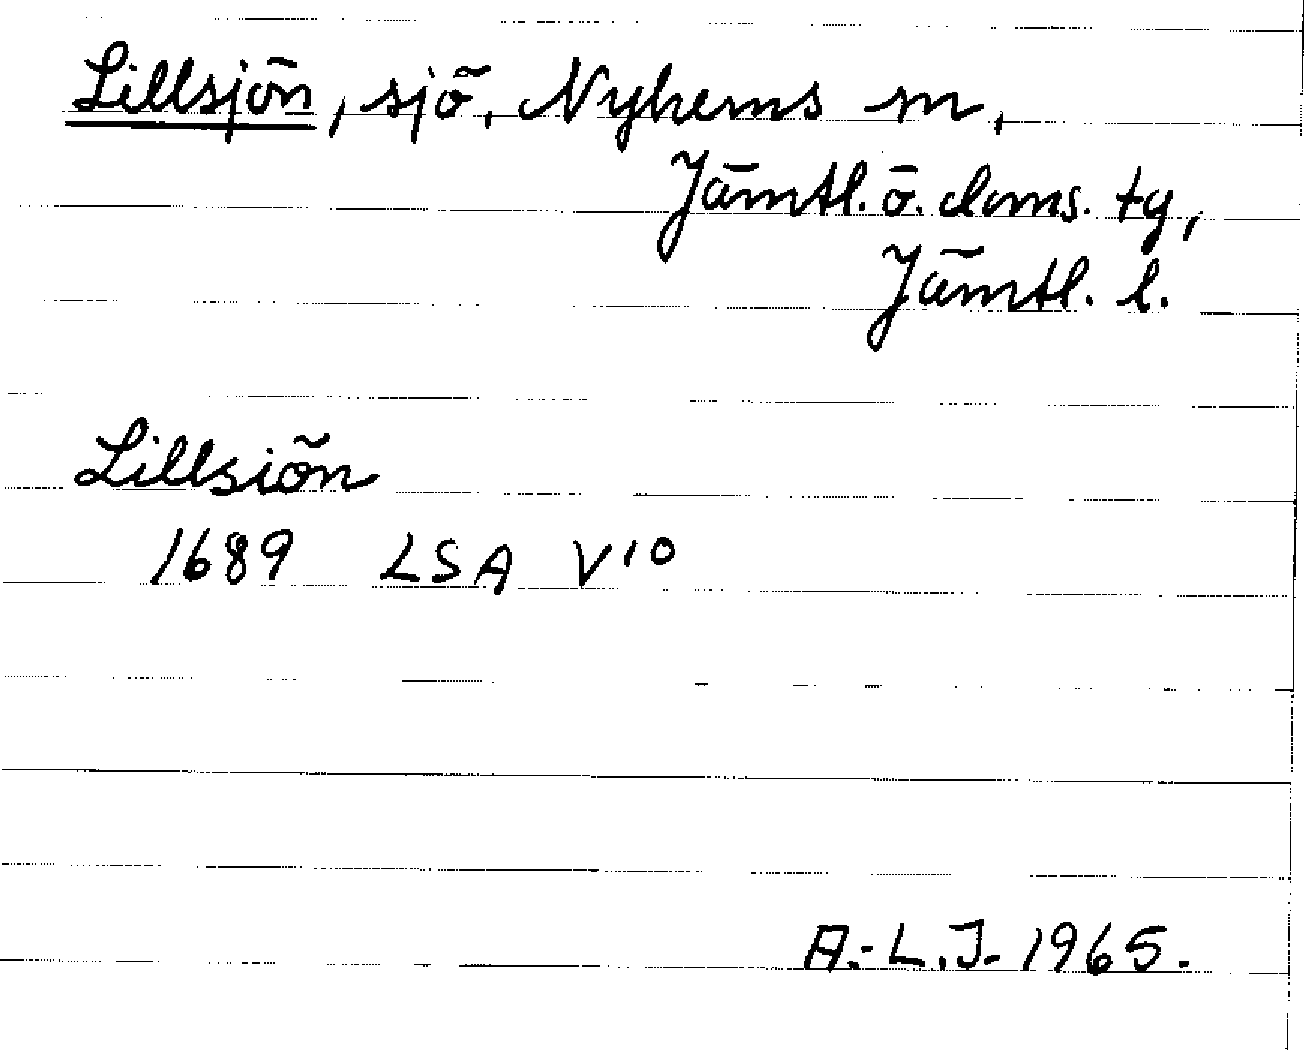 Lillsjön, sjö, Nyhems sn,
Jämtl. ö. doms. tg,
Jämtl. l.
Lillsiön
1689 LSA V10
A.-L.J. 1965.